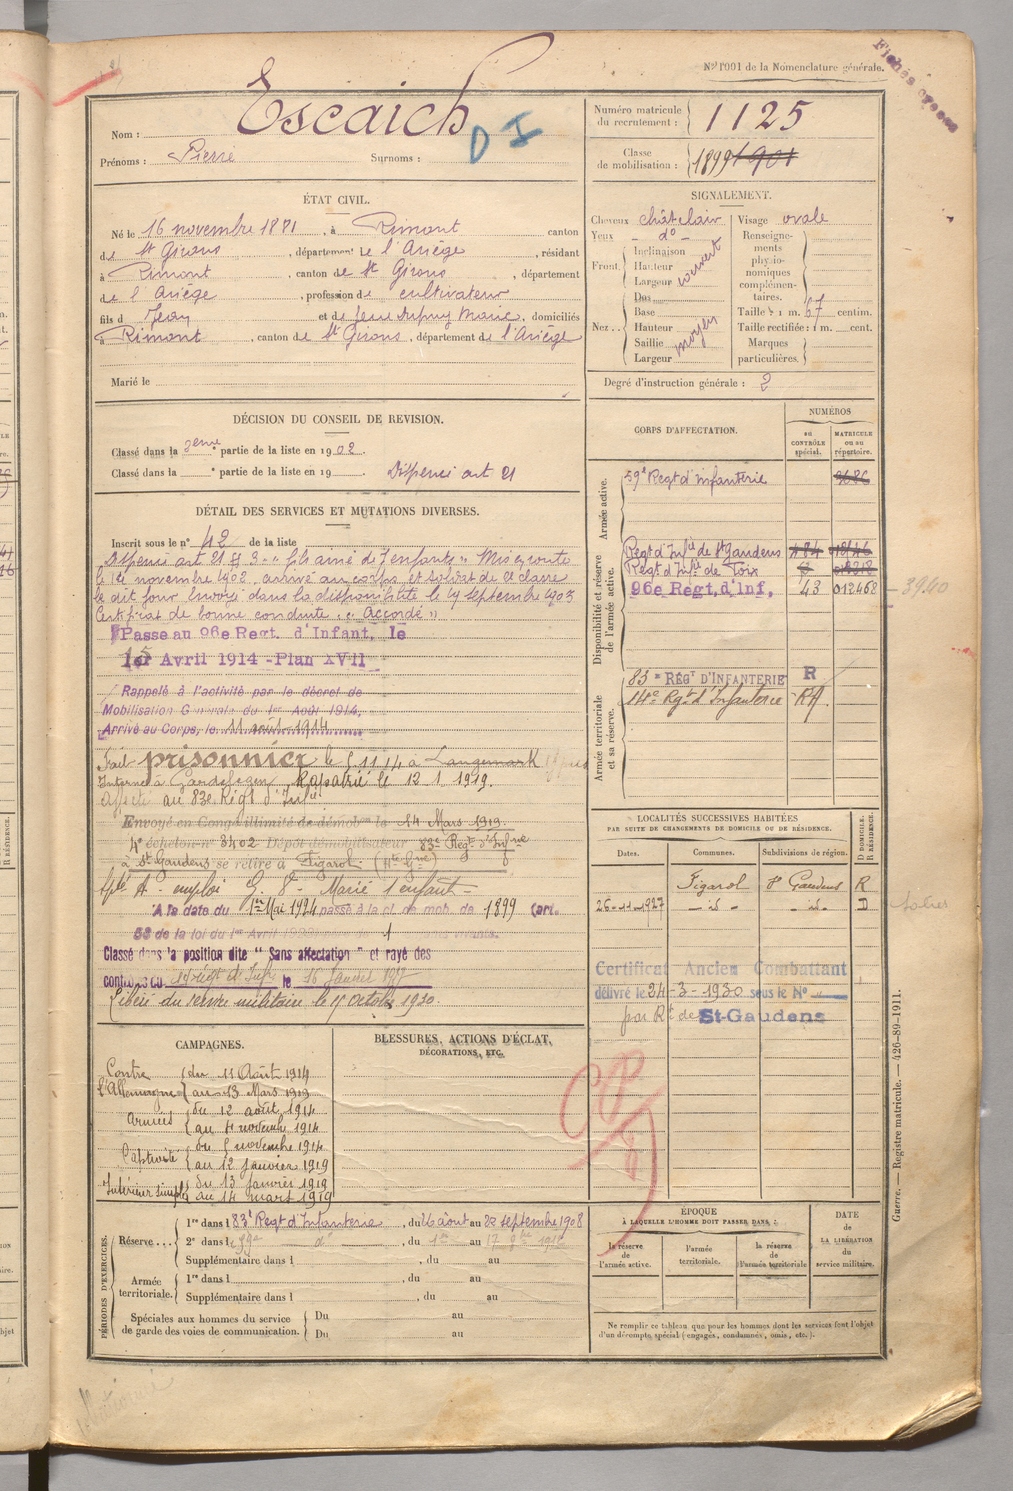 Nº 1001 de la Nomenclature générale.
Fichés
Nom : Escaich
D I
Prénoms : Pierre Surnoms :
Numéro matricule du recrutement : 1125
Classe de mobilisation : 1899 1901
ÉTAT CIVIL.
Né le 16 novembre 1881, à Rimont canton
de St Girons, département de l'Ariège, résidant
à Rimont, canton de St Girons, département
de l'Ariège, profession de cultivateur
fils de Jean et de feue Dupuy Marie, domiciliés
à Rimont, canton de St Girons, département de l'Ariège
Marié le
SIGNALEMENT.
Cheveux châtclair
Yeux dº
Front Inclinaison
Hauteur
Largeur
couvert
Nez Dos
Base
Hauteur
Saillie
Largeur
moyen
Visage ovale
Renseignements physionomiques complémentaires.
Taille : 1 m. 67 centim.
Taille rectifiée : 1 m. cent.
Marques particulières.
Degré d'instruction générale : 2
DÉCISION DU CONSEIL DE REVISION.
Classé dans la 2eme partie de la liste en 1902.
Classé dans la partie de la liste en 19 Dispensé art 21
DÉTAIL DES SERVICES ET MUTATIONS DIVERSES.
Inscrit sous le nº 42 de la liste
Dispensé art 21 § 3 - "fils aîné de 7 enfants" Mis en route
le 14 novembre 1902, arrivé au corps et soldat de 2e classe
le dit jour Envoyé dans la disponibilité le 19 septembre 1903
Certificat de bonne conduite "Accordé"
Passe au 96e Regt. d'Infant. le
1er Avril 1914 - Plan XVII
15
Rappelé à l'activité par le décret de
Mobilisation Generale du 1er Août 1914,
Arrivé au Corps, le 11 août 1914
Fait prisonnier le 5 11 14 à Langemark
Interné à Gardelegen Rapatrié le 12.1.1919.
Affecté au 83e Régt d'Infie
Envoyé en Congé illimité de démob. le 14 Mars 1919.
4e échelon nº 3402 Dépôt démobilisateur 83e Regt d'Infrie
à St Gaudens se retire à Figarol (Hte Gne)
Marié 1 enfant
A la date du 1er Mai 1924 passe à la cl. de mob. de 1899 (art.
58 de la loi du 1er Avril 1923) 1 vivants.
Classé dans la position dite "Sans affectation" et rayé des
contrôles du 14 régt d'Infie le 16 Janvier 1927
Libéré du service militaire le 15 Octobre 1930.
CORPS D'AFFECTATION.
NUMÉROS
au CONTRÔLE spécial.
MATRICULE ou au répertoire.
Armée active.
59e Regt d'infanterie 9686
Disponibilité et réserve de l'armée active.
Regt d'Infie de St Gaudens 484
Regt d'Infie de Foix
96e Regt. d'Inf. 43 012468
3940
Armée territoriale et sa réserve.
83e RÉGt D'INFANTERIE R
14e Rgt d'Infanterie RA
LOCALITÉS SUCCESSIVES HABITÉES
PAR SUITE DE CHANGEMENTS DE DOMICILE OU DE RÉSIDENCE.
Dates. Communes. Subdivisions de région. D DOMICILE. R RÉSIDENCE.
Figarol St Gaudens R
26-11-1927 - id - - id - D
Certificat Ancien Combattant
délivré le 24-3-1930 sous le Nº
par Rt de St-Gaudens
CAMPAGNES.
Contre l'Allemagne du 11 Août 1914
au 13 Mars 1919
Armées du 12 août 1914
au 4 novembre 1914
Captivité du 5 novembre 1914
au 12 janvier 1919
Intérieur simple du 13 janvier 1919
au 14 mars 1919
BLESSURES, ACTIONS D'ÉCLAT,
DÉCORATIONS, ETC.
PÉRIODES D'EXERCICES.
Réserve...
1re dans le 83e Regt d'Infanterie, du 26 août au 22 septembre 1908
2e dans le 59e dº, du 1er au 17
Supplémentaire dans l , du au
Armée territoriale.
1re dans l , du au
Supplémentaire dans l , du au
Spéciales aux hommes du service de garde des voies de communication. Du au
Du au
ÉPOQUE
À LAQUELLE L'HOMME DOIT PASSER DANS :
la réserve de l'armée active. l'armée territoriale. la réserve de l'armée territoriale
DATE de LA LIBÉRATION du service militaire.
Ne remplir ce tableau que pour les hommes dont les services font l'objet
d'un décompte spécial (engagés, condamnés, omis, etc.).
Guerre. — Registre matricule. — 426-89-1911.